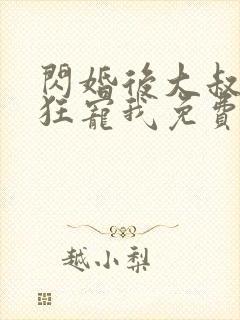 閃婚後大叔
狂寵我免費
越小梨